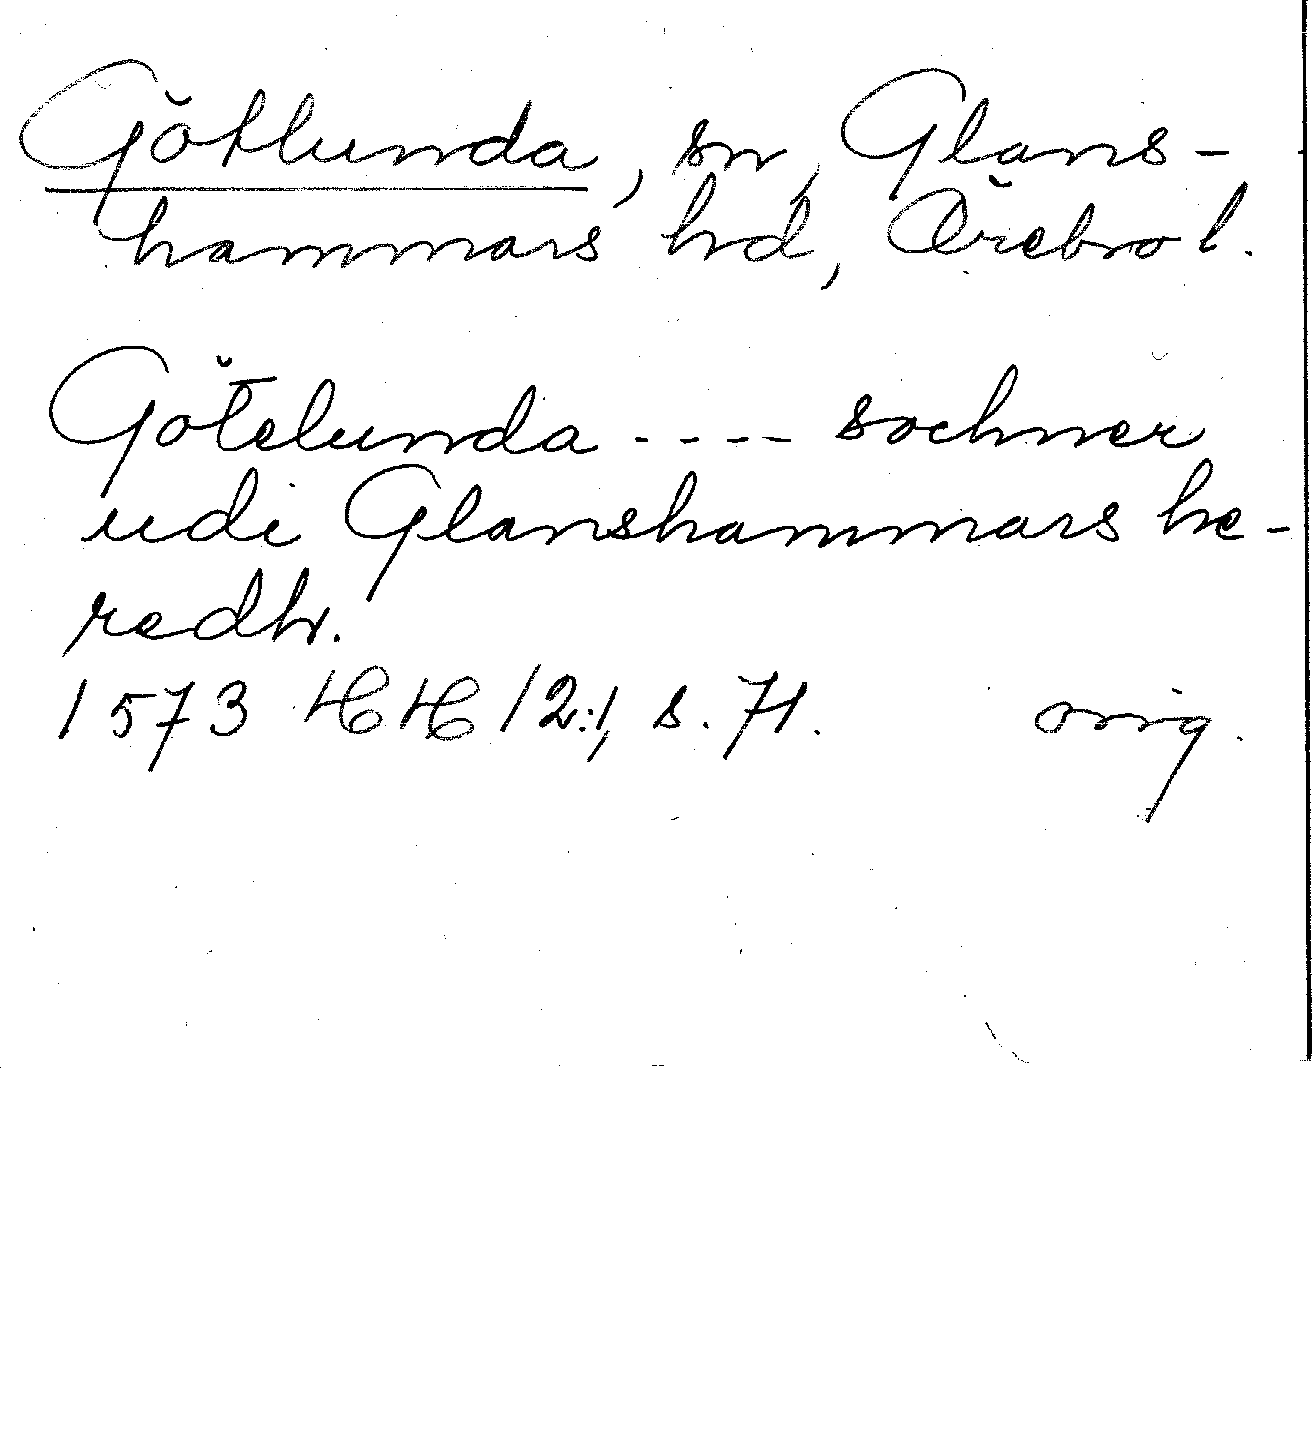 Götlunda, sn, Glans-
hammars hd, Örebro l.
Götelunda ---- sochner
udi Glanshammars he-
redh.
1573 HH 12:1, s. 71. orig.